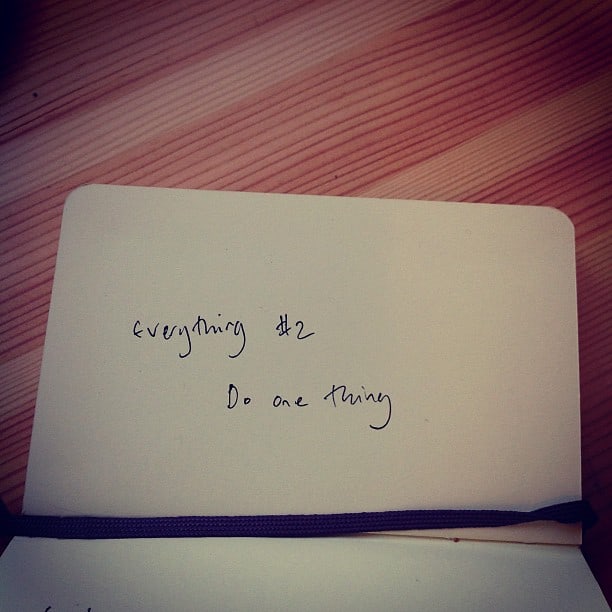 Everything #2
Do one thing